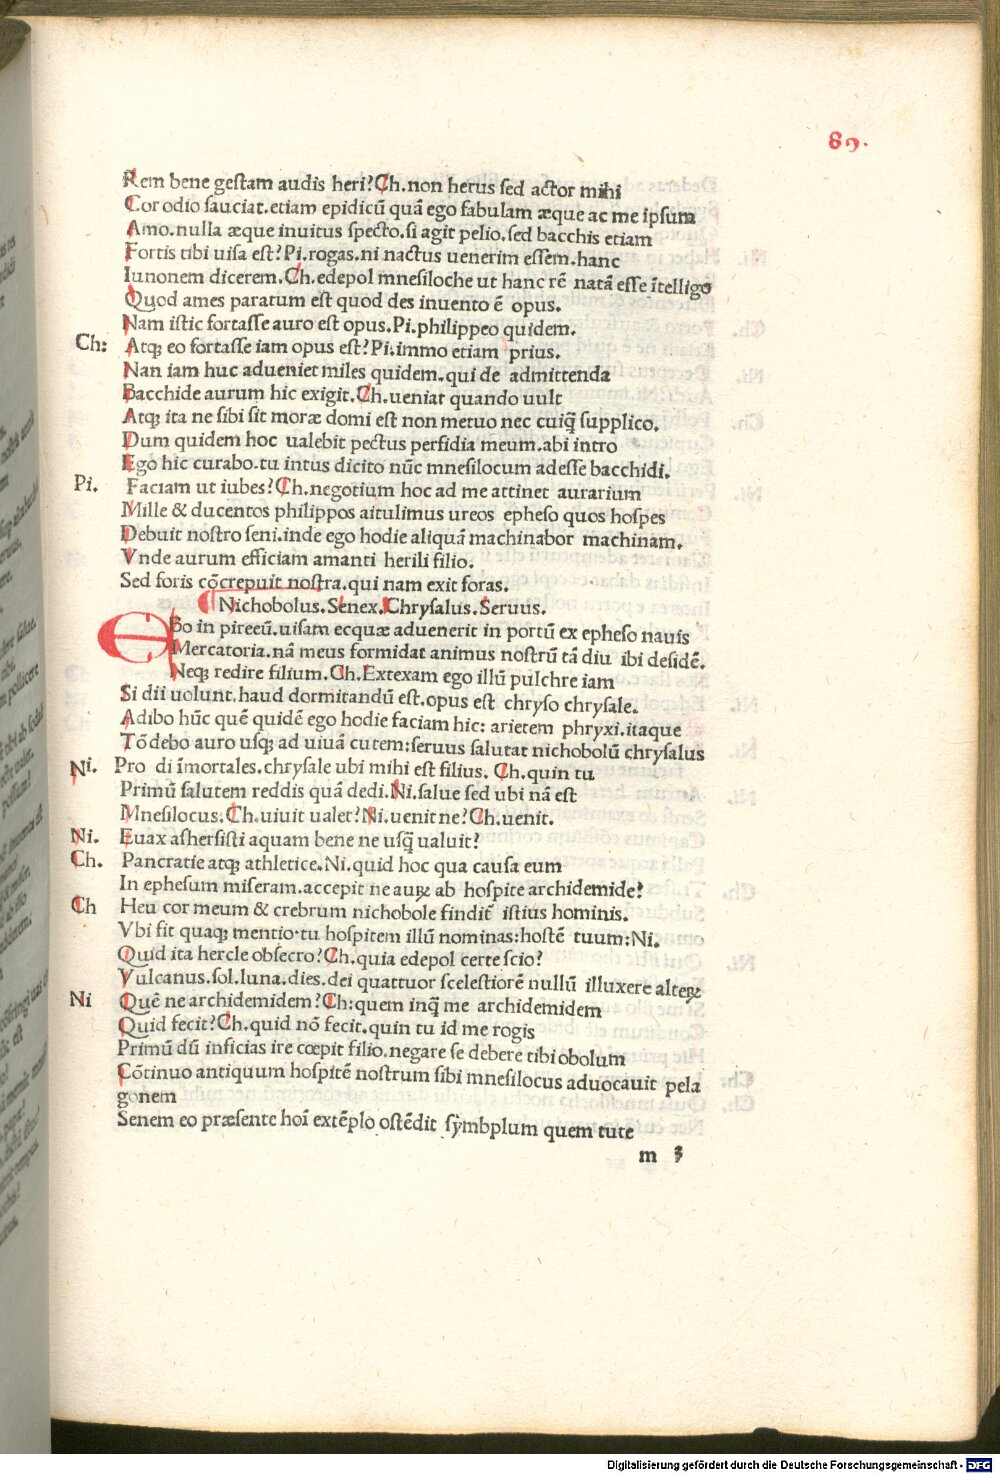 89.
Rem bene gestam audis heri?Ch.non herus sed actor mihi
Cor odio sauciat.etiam epidicū quā ego fabulam æque ac me ipsum
Amo.nulla æque inuitus specto.si agit pelio.sed bacchis etiam
Fortis tibi uisa est?Pi.rogas.ni nactus uenerim essem.hanc
Iunonem dicerem.Ch.edepol mnesiloche ut hanc rē natā esse ītelligo
Quod ames paratum est quod des inuento ē opus.
Nam istic fortasse auro est opus.Pi.philippeo quidem.
Ch: Atqȝ eo fortasse iam opus est?Pi.immo etiam prius.
Nan iam huc adueniet miles quidem.qui de admittenda
Bacchide aurum hic exigit.Ch.ueniat quando uult
Atqȝ ita ne sibi sit moræ domi est non metuo nec cuiq̄ supplico.
Dum quidem hoc ualebit pectus perfidia meum.abi intro
Ego hic curabo.tu intus dicito nūc mnesilocum adesse bacchidi.
Pi. Faciam ut iubes?Ch.negotium hoc ad me attinet aurarium
Mille & ducentos philippos aitulimus ureos epheso quos hospes
Debuit nostro seni.inde ego hodie aliquā machinabor machinam.
Vnde aurum efficiam amanti herili filio.
Sed foris cōcrepuit nostra.qui nam exit foras.
Nichobolus.Senex.Chrysalus.Seruus.
EBo in pireeū.uisam ecquæ aduenerit in portū ex epheso nauis
Mercatoria.nā meus formidat animus nostrū tā diu ibi desidē.
Neqȝ redire filium.Ch.Extexam ego illū pulchre iam
Si dii uolunt.haud dormitandū est.opus est chryso chrysale.
Adibo hūc quē quidē ego hodie faciam hic: arietem phryxi.itaque
Tōdebo auro usqȝ ad uiuā cutem:seruus salutat nichobolū chrysalus
Ni. Pro di īmortales.chrysale ubi mihi est filius. Ch.quin tu
Primū salutem reddis quā dedi.Ni.salue sed ubi nā est
Mnesilocus.Ch.uiuit ualet?Ni.uenit ne?Ch.uenit.
Ni. Euax ashersisti aquam bene ne usq̄ ualuit?
Ch. Pancratie atqȝ athletice.Ni.quid hoc qua causa eum
In ephesum miseram.accepit ne auꝝ ab hospite archidemide?
Ch Heu cor meum & crebrum nichobole findit̄ istius hominis.
Vbi fit quaqȝ mentio.tu hospitem illū nominas:hostē tuum:Ni.
Quid ita hercle obsecro?Ch.quia edepol certe scio?
Vulcanus.sol.luna.dies.dei quattuor scelestiorē nullū illuxere alteꝝ
Ni Quē ne archidemidem?Ch:quem inq̄ me archidemidem
Quid fecit?Ch.quid nō fecit.quin tu id me rogis
Primū dū inficias ire cœpit filio.negare se debere tibi obolum
Cōtinuo antiquum hospitē nostrum sibi mnesilocus aduocauit pela
gonem
Senem eo præsente hoī extēplo ostēdit symbplum quem tute
m 3
Digitalisierung gefördert durch die Deutsche Forschungsgemeinschaft - DFG